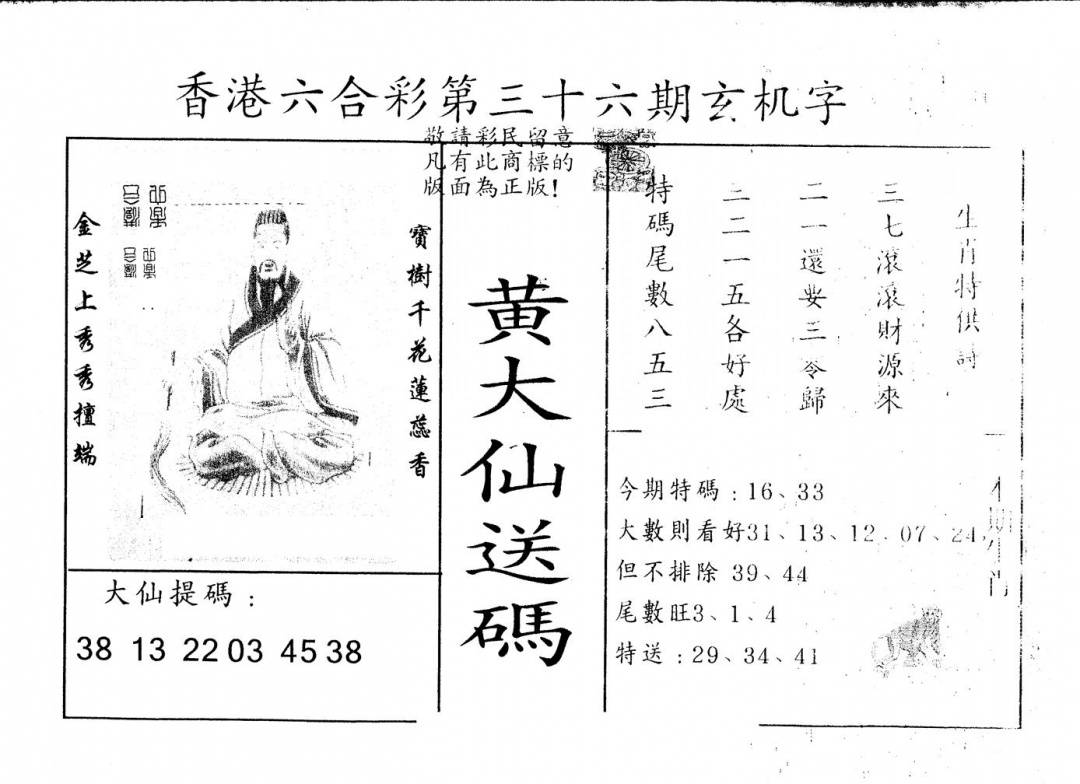 香港六合彩第三十六期玄机字
敬請彩民留意
凡有此商標的
版面為正版!
寶樹千花蓮蕊香
金芝上秀秀擅端
大仙提碼:
38 13 22 03 45 38
黄大仙送碼
生肖特供詩
三七滾滾財源來
二一還要三零歸
二二一五各好處
特碼尾數八五三
今期特碼:16、33
大數則看好31、13、12、07、24,
但不排除 39、44
尾數旺3、1、4
特送:29、34、41
本期生肖